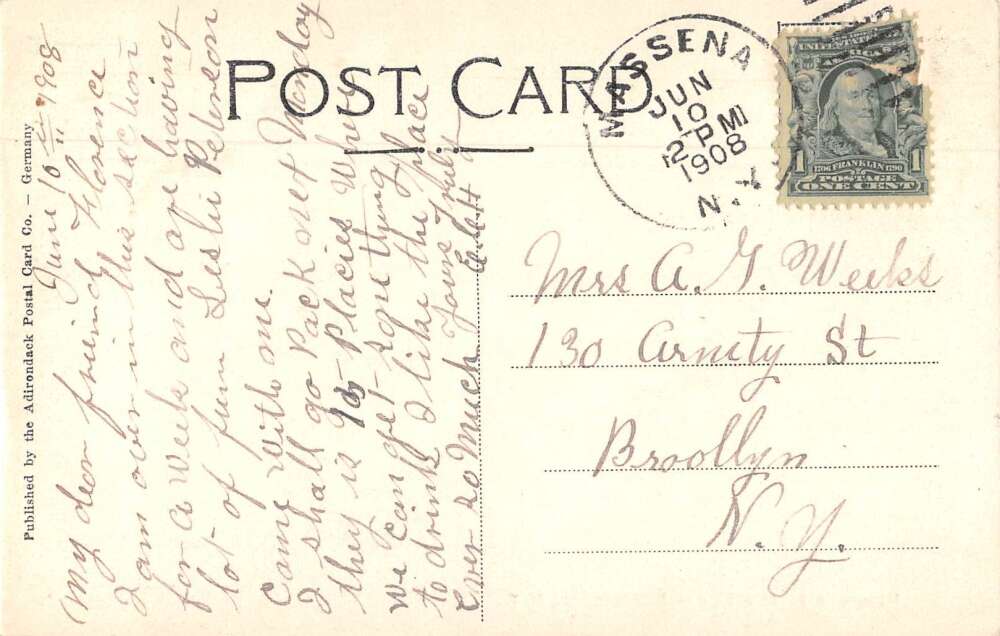 POST CARD
MASSENA
JUN
10
12 PM
1908
N.Y.
UNITED STATES
1 1706 FRANKLIN 1790 1
POSTAGE
ONE CENT
Published by the Adirondack Postal Card Co. — Germany
June 10 1908
My dear friend Florence
I am over in this section
for a week and are having
lot of fun Leslie Peterson
Came with me.
I shall go back next Monday
they is 10 Placies Whr
we can get some thing
to drink I like the place
Ever so Much Yours Truly
Mrs A. G. Weeks
130 Amity St
Broollyn
N.Y.